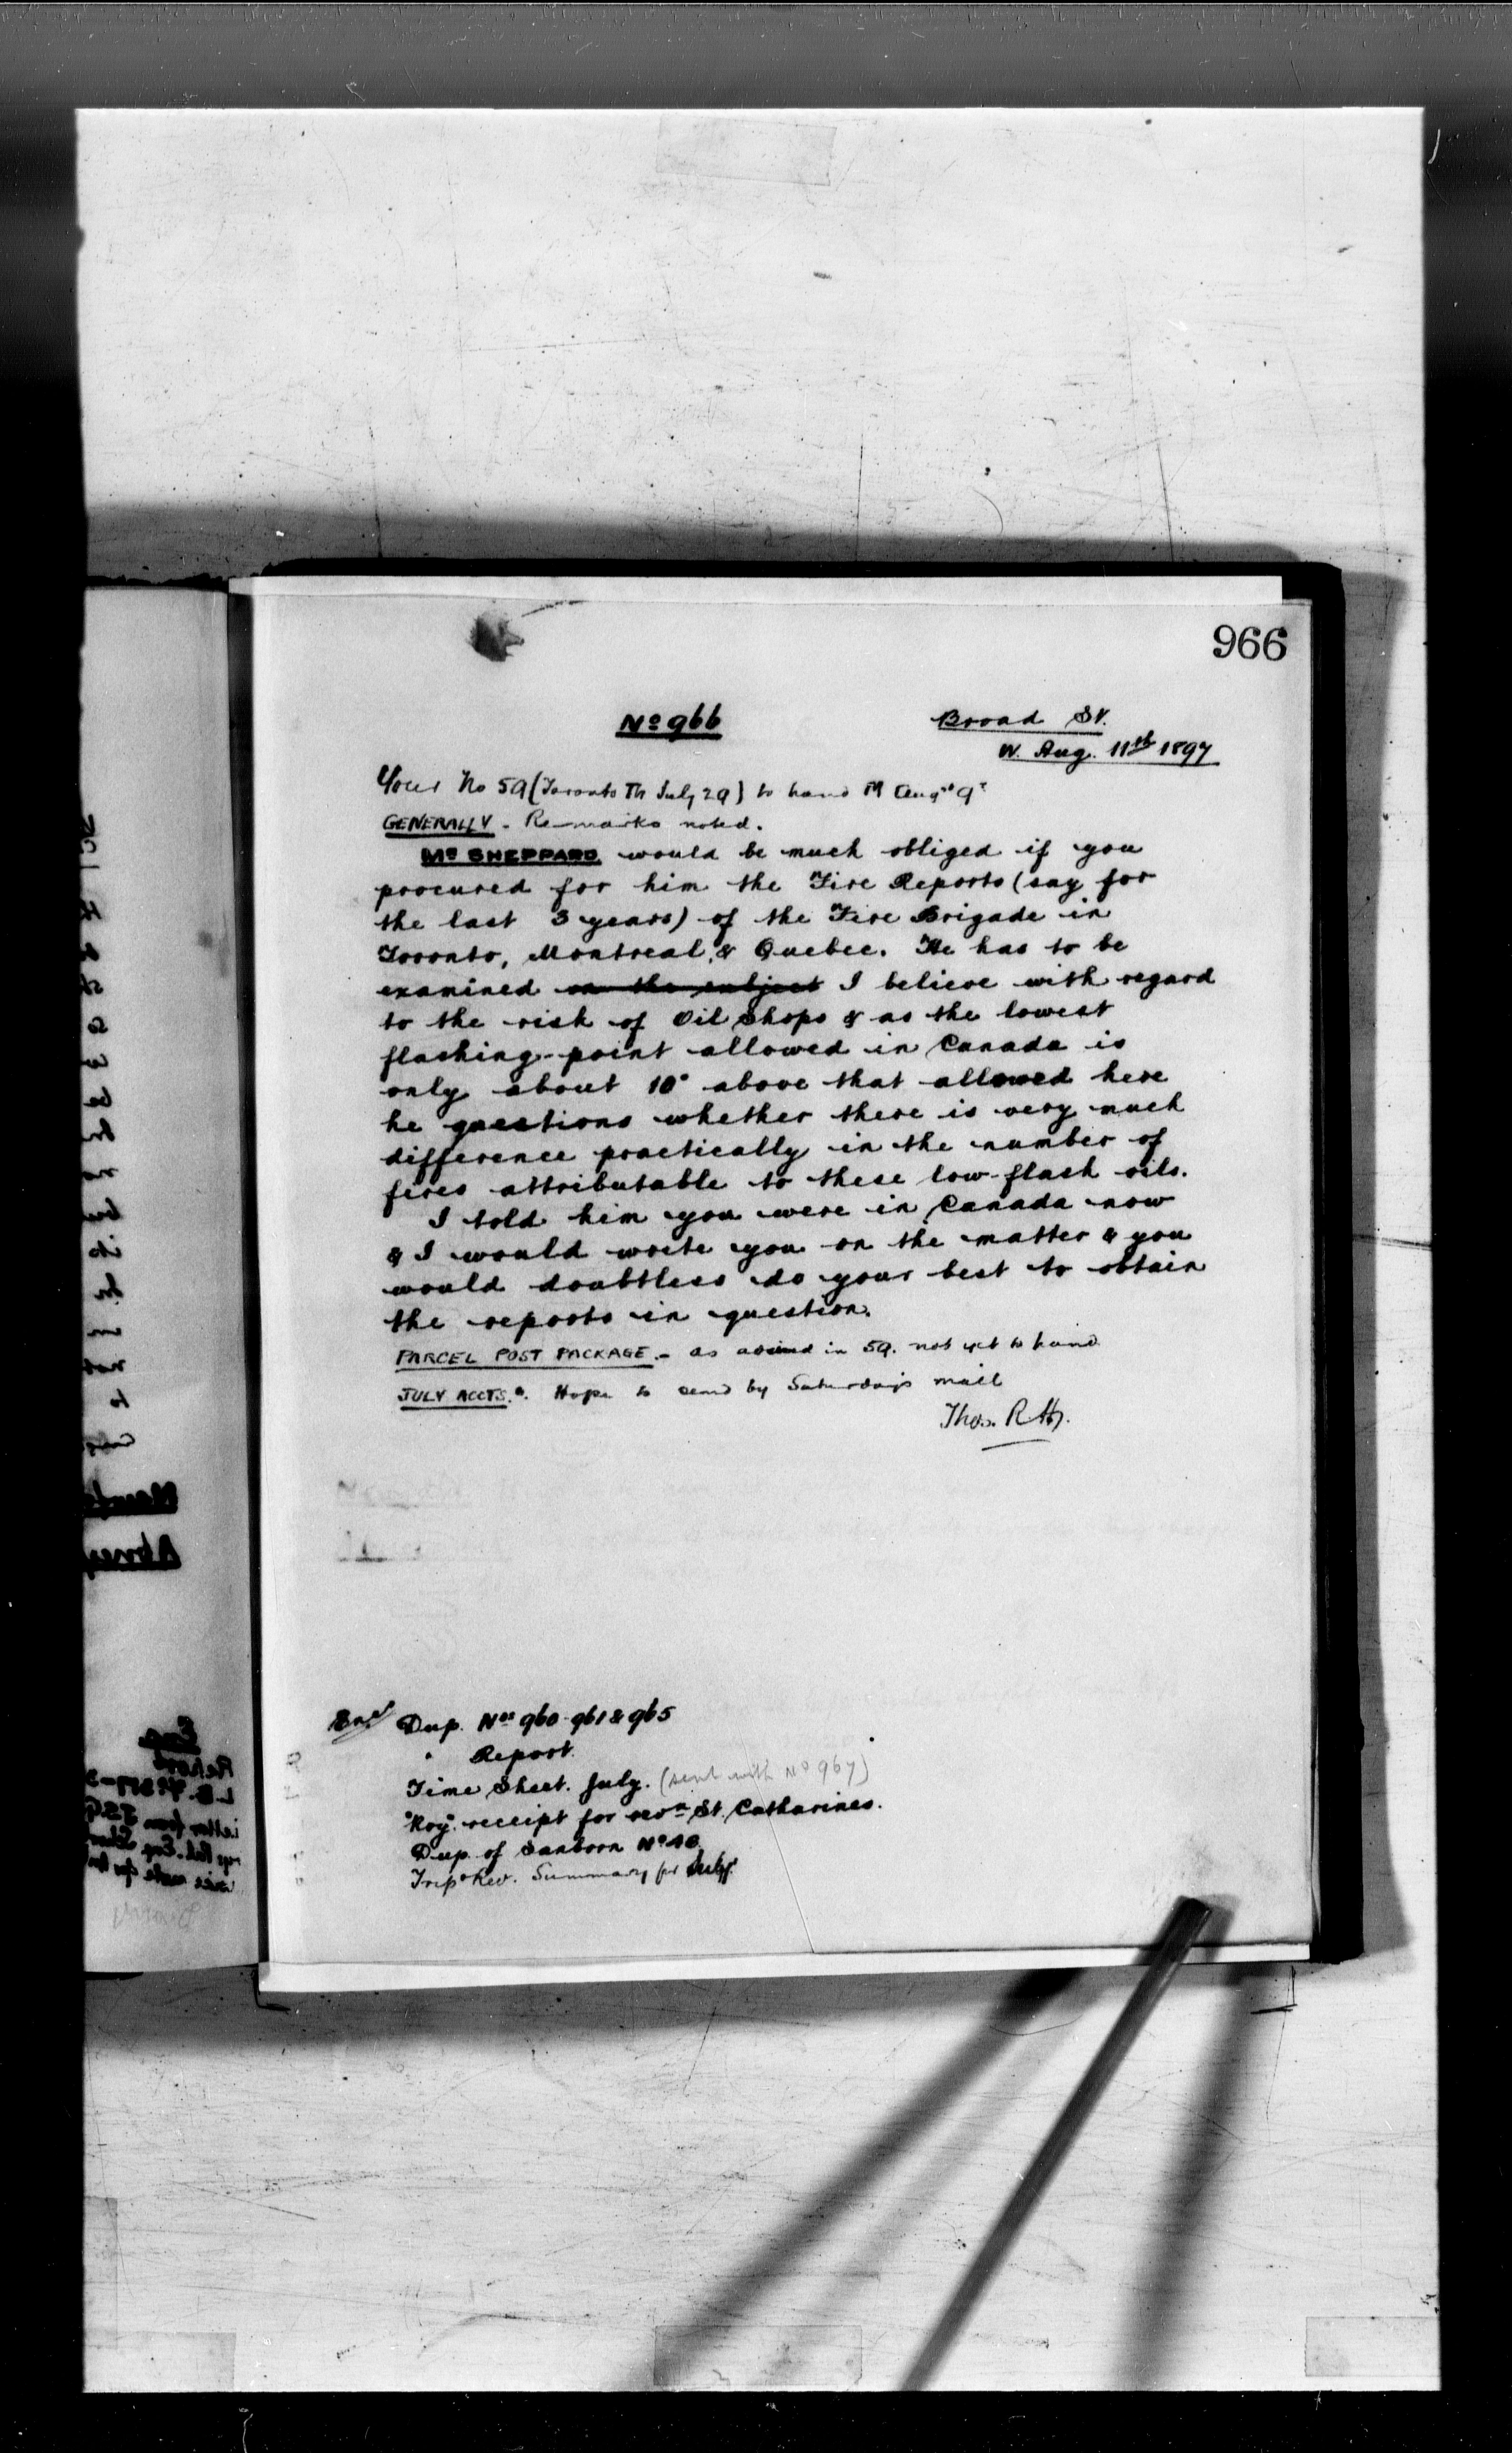 966
No 966
Broad St.
W. Aug. 11th 1897
Your No 59 (Toronto Th July 29) to hand M Augst 9th
GENERALLY - Remarks noted.
Mr SHEPPARD would be much obliged if you
procured for him the Fire Reports (say for
the last 3 years) of the Fire Brigade in
Toronto, Montreal, & Quebec. He has to be
examined on the subject I believe with regard
to the risk of Oil Shops & as the lowest
flashing-point allowed in Canada is
only about 10° above that allowed here
he questions whether there is very much
difference practically in the number of
fires attributable to these low-flash oils.
I told him you were in Canada now
& I would write you on the matter & you
would doubtless do your best to obtain
the reports in question.
PARCEL POST PACKAGE.- as advised in 59. not yet to hand
JULY ACCTS. Hope to send by Saturday's mail
Thos. R
Encl Dup. Nos 960-961 & 965
" Report.
Time Sheet. July. (sent with No 967)
"Roy" receipt for revn St. Catharines.
Dup. of Sanborn No
Trip & Rev. Summary for July.